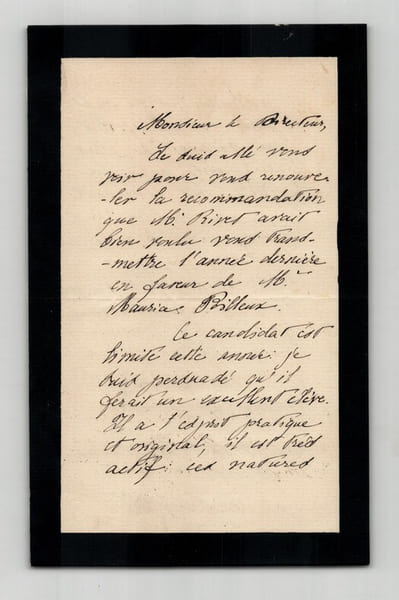 Monsieur le Directeur,
Je suis allé vous
voir pour vous renouve-
-ler la recommandation
que Mr Rivet avait
bien voulu vous trans-
-mettre l'année dernière
en faveur de Mr
Maurice Billeux.
Ce candidat est
limite cette année: je
suis persuadé qu'il
ferait un excellent élève.
Il a l'esprit pratique
et original, il est très
actif: ces natures